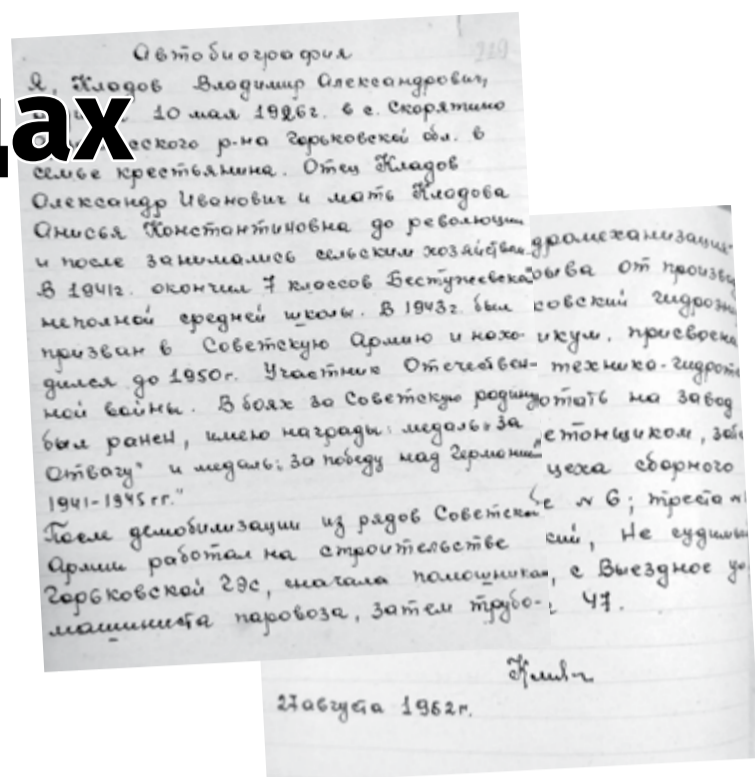 цах
219
Автобиография
Я, Кладов Владимир Александрович,
10 мая 1926г. в с. Скорятино
ского р-на Горьковской обл. в
семье крестьянина. Отец Кладов
Александр Иванович и мать Кладова
Анисья Константиновна до революции
и после занимались сельским хозяйством.
В 1941г. окончил 7 классов Бестужевской
неполной средней школы. В 1943г. был
призван в Советскую Армию и нахо-
дился до 1950г. Участник Отечествен-
ной войны. В боях за Советскую родину
был ранен, имею награды: медаль „За
Отвагу" и медаль: За победу над Германией
1941-1945 гг."
После демобилизации из рядов Советской
Армии работал на строительстве
Горьковской ГЭС, сначала помощником
машиниста паровоза, затем трубо-
дромеханизации
рыва от произв
совский гидро
икум, присвоен
техника-гидро
отать на завод
етонщиком,
цеха сборного
№ 6; треста
сий, Не судимы
, с Выездное
47.
27 августа 1962г.